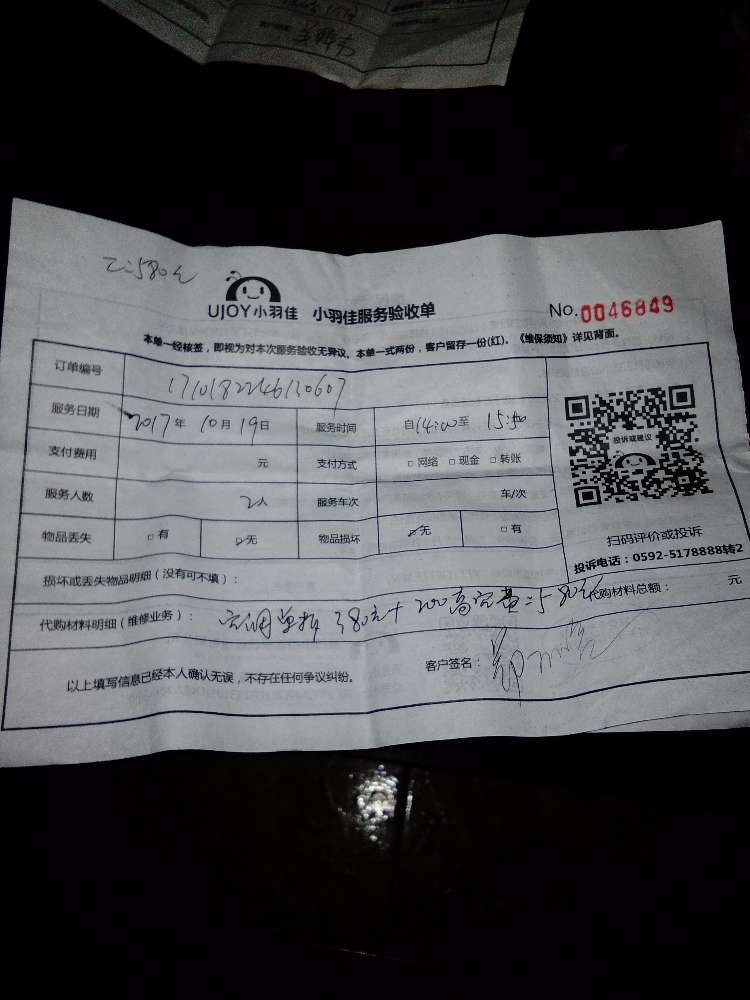 580元
UJOY小羽佳 小羽佳服务验收单 No.0046849
本单一经核签，即视为对本次服务验收无异议。本单一式两份，客户留存一份(红)。《维保须知》详见背面。
订单编号 1710182246130607
服务日期 2017年10月19日 服务时间 自14:00至15:50
支付费用 元 支付方式 □网络 □现金 □转账
服务人数 2人 服务车次 车/次
物品丢失 □有 ☑无 物品损坏 ☑无 □有
投诉或建议
扫码评价或投诉
投诉电话：0592-5178888转2
损坏或丢失物品明细（没有可不填）：
代购材料明细（维修业务）： 空调单拆380元+200高空费=580元 代购材料总额： 元
以上填写信息已经本人确认无误，不存在任何争议纠纷。 客户签名：